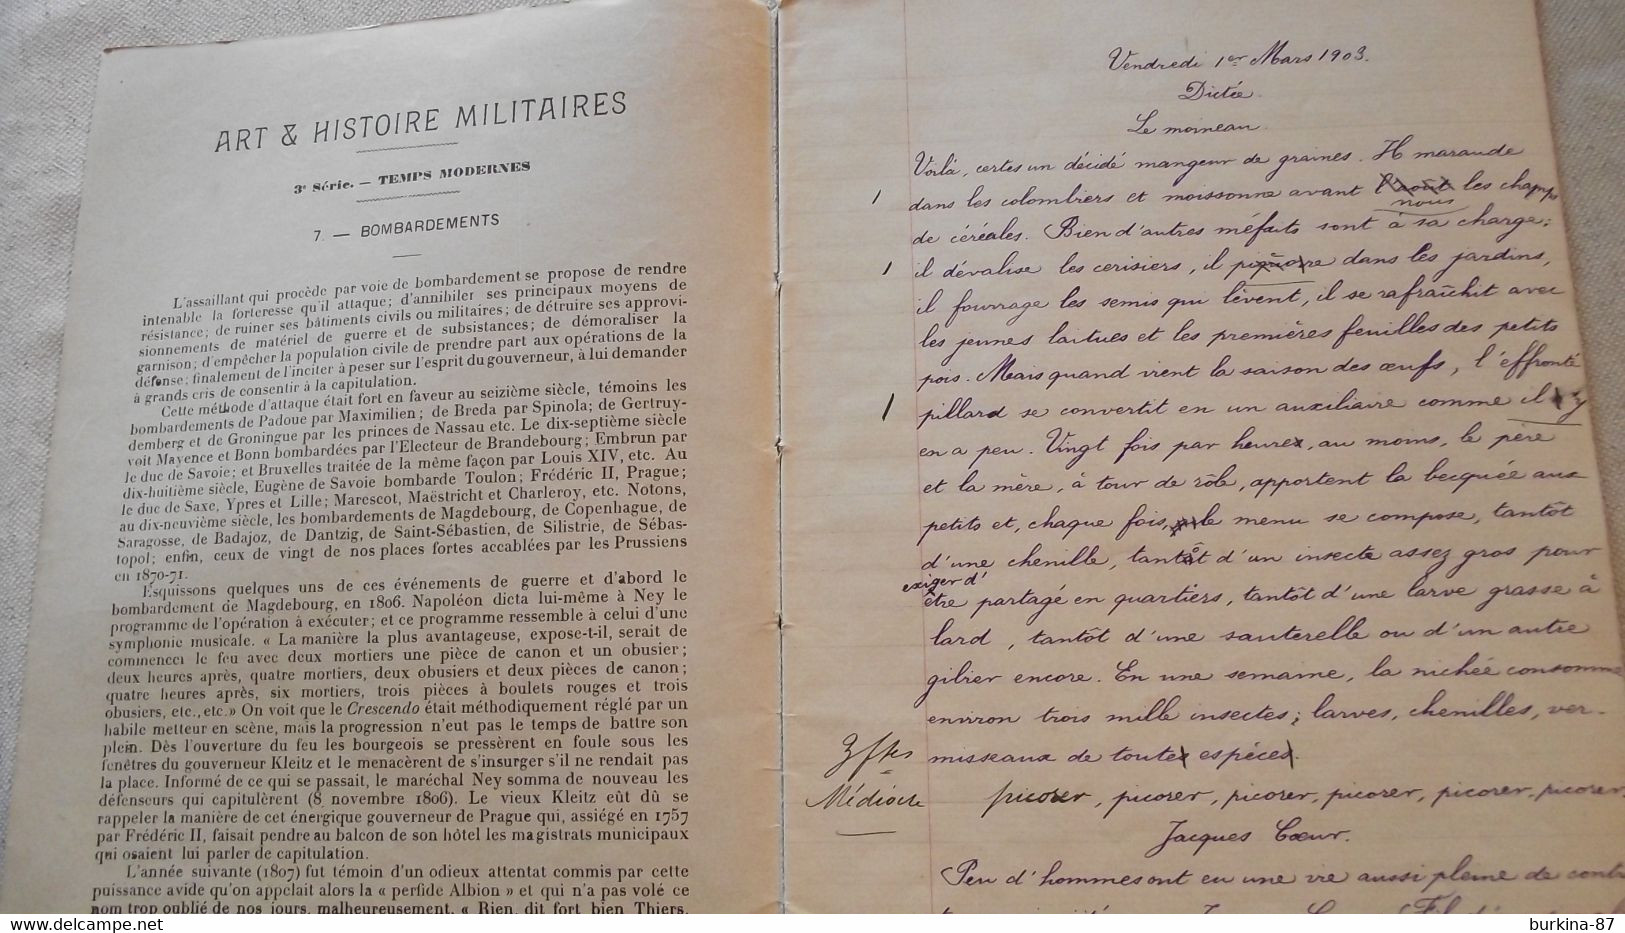 ART & HISTOIRE MILITAIRES
3e Série. — TEMPS MODERNES
7. — BOMBARDEMENTS
L'assaillant qui procède par voie de bombardement se propose de rendre
intenable la forteresse qu'il attaque; d'annihiler ses principaux moyens de
résistance; de ruiner ses bâtiments civils ou militaires; de détruire ses approvi-
sionnements de matériel de guerre et de subsistances; de démoraliser la
garnison; d'empêcher la population civile de prendre part aux opérations de la
défense; finalement de l'inciter à peser sur l'esprit du gouverneur, à lui demander
à grands cris de consentir à la capitulation.
Cette méthode d'attaque était fort en faveur au seizième siècle, témoins les
bombardements de Padoue par Maximilien; de Breda par Spinola; de Gertruy-
demberg et de Groningue par les princes de Nassau etc. Le dix-septième siècle
voit Mayence et Bonn bombardées par l'Electeur de Brandebourg; Embrun par
le duc de Savoie; et Bruxelles traitée de la même façon par Louis XIV, etc. Au
dix-huitième siècle, Eugène de Savoie bombarde Toulon; Frédéric II, Prague;
le duc de Saxe, Ypres et Lille; Marescot, Maëstricht et Charleroy, etc. Notons,
au dix-neuvième siècle, les bombardements de Magdebourg, de Copenhague, de
Saragosse, de Badajoz, de Dantzig, de Saint-Sébastien, de Silistrie, de Sébas-
topol; enfin, ceux de vingt de nos places fortes accablées par les Prussiens
en 1870-71.
Esquissons quelques uns de ces événements de guerre et d'abord le
bombardement de Magdebourg, en 1806. Napoléon dicta lui-même à Ney le
programme de l'opération à exécuter; et ce programme ressemble à celui d'une
symphonie musicale. « La manière la plus avantageuse, expose-t-il, serait de
commencei le feu avec deux mortiers une pièce de canon et un obusier;
deux heures après, quatre mortiers, deux obusiers et deux pièces de canon;
quatre heures après, six mortiers, trois pièces à boulets rouges et trois
obusiers, etc., etc. » On voit que le Crescendo était méthodiquement réglé par un
habile metteur en scène, mais la progression n'eut pas le temps de battre son
plein. Dès l'ouverture du feu les bourgeois se pressèrent en foule sous les
fenêtres du gouverneur Kleitz et le menacèrent de s'insurger s'il ne rendait pas
la place. Informé de ce qui se passait, le maréchal Ney somma de nouveau les
défenseurs qui capitulèrent (8 novembre 1806). Le vieux Kleitz eût dû se
rappeler la manière de cet énergique gouverneur de Prague qui, assiégé en 1757
par Frédéric II, faisait pendre au balcon de son hôtel les magistrats municipaux
qui osaient lui parler de capitulation.
L'année suivante (1807) fut témoin d'un odieux attentat commis par cette
puissance avide qu'on appelait alors la « perfide Albion » et qui n'a pas volé ce
nom trop oublié de nos jours, malheureusement. « Rien, dit fort bien Thiers,
Vendredi 1er Mars 1903.
Dictée.
Le moineau.
Voilà, certes un décidé mangeur de graines. Il maraude
dans les colombiers et moissonne avant l'août les champs
nous
de céréales. Bien d'autres méfaits sont à sa charge:
il dévalise les cerisiers, il piquore dans les jardins,
il fourrage les semis qui lèvent, il se rafraîchit avec
les jeunes laitues et les premières feuilles des petits
pois. Mais quand vient la saison des œufs, l'effronté
pillard se convertit en un auxiliaire comme il y
en a peu. Vingt fois par heure, au moins, le père
et la mère, à tour de rôle, apportent la becquée aux
petits et, chaque fois, le menu se compose, tantôt
d'une chenille, tantôt d'un insecte assez gros pour
exiger d'
être partagé en quartiers, tantôt d'une larve grasse à
lard, tantôt d'une sauterelle ou d'un autre
gibier encore. En une semaine, la nichée consomme
environ trois mille insectes; larves, chenilles, ver-
misseaux de toutes espèces.
3 ftes
Médiocre
picorer, picorer, picorer, picorer, picorer, picorer.
Jacques Cœur.
Peu d'hommes ont eu une vie aussi pleine de contr
burkina-87